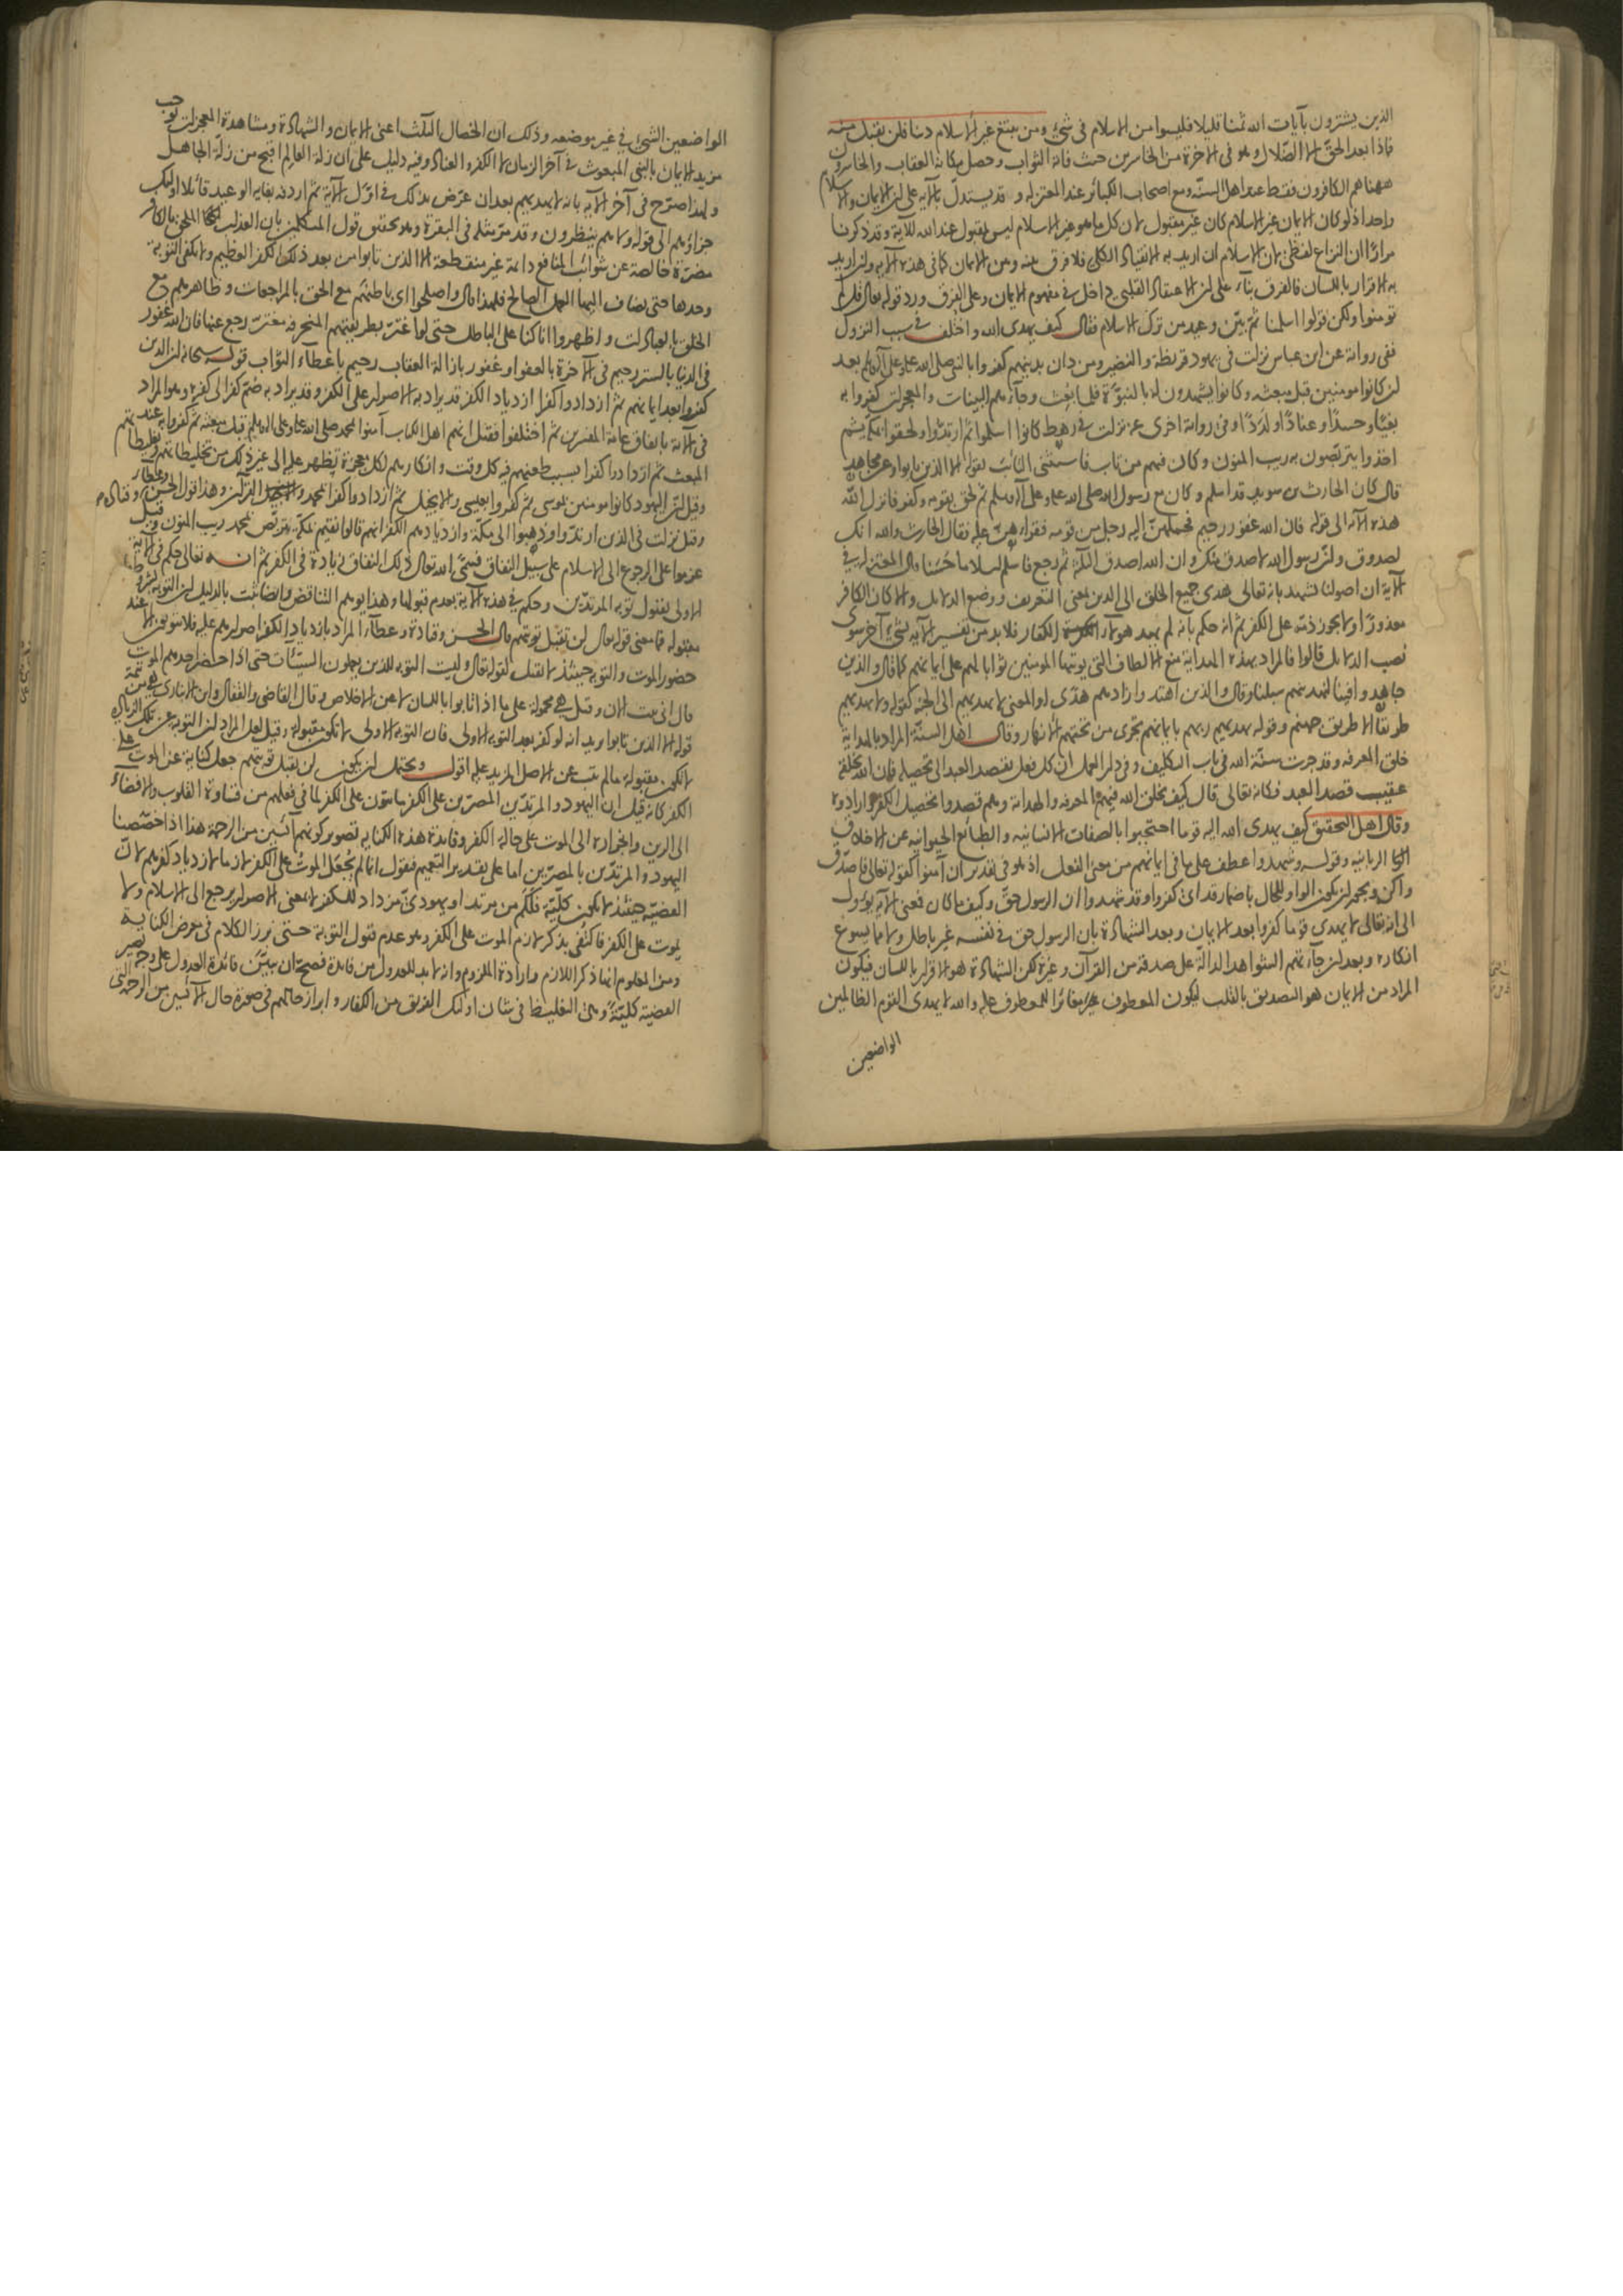 الذين يشترون بآيات الله ثمنا قليلا فليسوا من الاسلام في شيء ومن يبتغ غير الاسلام دينا فلن يقبل منه
فماذا بعد الحق الا الضلال وهو في الآخرة من الخاسرين حيث فاته الثواب وحصل مكانه العقاب والخاسرون
ههنا هم الكافرون فقط عند اهل السنة ومع اصحاب الكبائر عند المعتزلة وقد يستدل بالآية على ان الايمان والاسلام
واحد اذ لو كان الايمان غير الاسلام كان غير مقبول لان كل ما هو غير الاسلام ليس بمقبول عند الله للآية وقد ذكرنا
مرارا ان النزاع لفظي لان الاسلام ان اريد به الانقياد الكلي فلا فرق بينه وبين الايمان كما في هذه الآية وان اريد
به الاقرار باللسان فالفرق بناء على ان الاعتقاد القلبي داخل في مفهوم الايمان وعلى الفرق ورد قوله تعالى قل لم
تؤمنوا ولكن قولوا اسلمنا ثم بين وعيد من ترك الاسلام فقال كيف يهدي الله واختلف في سبب النزول
ففي رواية عن ابن عباس نزلت في يهود قريظة والنضير ومن دان بدينهم كفروا بالنبي صلى الله عليه وعلى آله وسلم بعد
ان كانوا مؤمنين قبل مبعثه وكانوا يشهدون له بالنبوة فلما بعث وجاءهم البينات والمعجزات كفروا به
بغيا وحسدا وعنادا ولددا وفي رواية اخرى عنه نزلت في رهط كانوا اسلموا ثم ارتدوا ولحقوا بمكة ثم
اخذوا يتربصون به ريب المنون وكان فيهم من تاب فاستثنى التائب بقوله الا الذين تابوا وعن مجاهد
قال كان الحارث بن سويد قد اسلم وكان مع رسول الله صلى الله عليه وعلى آله وسلم ثم لحق بقومه وكفر فانزل الله
هذه الآية الى قوله فان الله غفور رحيم فحملهن اليه رجل من قومه فقرأهن عليه فقال الحارث والله انك
لصدوق وان رسول الله لاصدق منك وان الله اصدق الثلاثة ثم رجع فاسلم اسلاما حسنا قال المعتزلة في
الآية ان اصولنا تشهد بانه تعالى هدى جميع الخلق الى الدين بمعنى التعريف ووضع الدلائل والا كان الكافر
معذورا ولا يجوز ذمه على الكفر ثم انه حكم بانه لم يهد هؤلاء الكفار فلا بد من تفسير الآية بشيء آخر سوى
نصب الدلائل قالوا فالمراد بهذه الهداية منع الالطاف التي يؤتيها المؤمنين ثوابا لهم على ايمانهم كما قال والذين
جاهدوا فينا لنهدينهم سبلنا وقال والذين اهتدوا زادهم هدى او المعنى لا يهديهم الى الجنة كقوله ولا ليهديهم
طريقا الا طريق جهنم وقوله يهديهم ربهم بايمانهم تجري من تحتهم الانهار وقال اهل السنة المراد بالهداية
خلق المعرفة وقد جرت سنة الله في باب التكليف وفي دار العمل ان كل فعل يقصد العبد الى تحصيله فان الله يخلقه
عقيب قصد العبد فكأنه تعالى قال كيف يخلق الله فيهم المعرفة والهداية وهم قصدوا تحصيل الكفر وارادوه
وقال اهل التحقيق كيف يهدي الله اليه قوما احتجبوا بالصفات الانسانية والطبائع الحيوانية عن الاخلاق
الربانية وقوله وشهدوا عطف على ما في ايمانهم من معنى الفعل اذ هو في تقدير ان آمنوا كقوله تعالى فاصدق
واكن ويجوز ان يكون الواو للحال باضمار قد اي كفروا وقد شهدوا ان الرسول حق وكيف ما كان فمعنى الآية يؤول
الى انه تعالى لا يهدي قوما كفروا بعد الايمان وبعد الشهادة بان الرسول حق في نفسه غير باطل ولا مما يسوغ
انكاره وبعد ان جاءتهم الشواهد الدالة على صدقه من القرآن وغيره لكن الشهادة هو الاقرار باللسان فيكون
المراد من الايمان هو التصديق بالقلب ليكون المعطوف مغايرا للمعطوف عليه والله لا يهدي القوم الظالمين
الواضعين
الواضعين الشيء في غير موضعه وذلك ان الخصال الثلث اعني الايمان والشهادة ومشاهدة المعجزات توجب
مزيد الايمان بالنبي المبعوث في آخر الزمان لا الكفر والعناد وفيه دليل على ان زلة العالم اقبح من زلة الجاهل
ولهذا صرح في آخر الآية بانه لا يهديهم بعد ان عرض بذلك في اول الآية ثم اردفه بغاية الوعيد قائلا اولئك
جزاؤهم الى قوله ولا هم ينظرون وقد مر مثله في البقرة وهو تحقيق قول المتكلمين بان العذاب الملحق بالكافر
مضرة خالصة عن شوائب المنافع دائمة غير منقطعة الا الذين تابوا من بعد ذلك الكفر العظيم ولا تكفي التوبة
وحدها حتى يضاف اليها العمل الصالح فلهذا قال واصلحوا اي باطنهم مع الحق بالمراجعات وظاهرهم مع
الخلق بالعبادات واظهروا انا كنا على الباطل حتى لو اغتر بطريقتهم المنحرفة مغتر رجع عنها فان الله غفور
في الدنيا بالستر رحيم في الآخرة بالعفو او غفور بازالة العقاب رحيم باعطاء الثواب قوله سبحانه ان الذين
كفروا بعد ايمانهم ثم ازدادوا كفرا ازدياد الكفر قد يراد به الاصرار على الكفر وقد يراد به ضم كفر الى كفر وهو المراد
في الآية باتفاق عامة المفسرين ثم اختلفوا فقيل انهم اهل الكتاب آمنوا بمحمد صلى الله عليه وعلى آله وسلم قبل مبعثه ثم كفروا به عند
المبعث ثم ازدادوا كفرا بسبب طعنهم فيه كل وقت وانكارهم لكل معجزة تظهر عليه الى غير ذلك من تخليطاتهم وتغليطاتهم
وقيل ان اليهود كانوا مؤمنين بموسى ثم كفروا بعيسى والانجيل ثم ازدادوا كفرا بمحمد والقرآن وهذا قول الحسن وقتادة وعطاء
وقيل نزلت في الذين ارتدوا وذهبوا الى مكة وازديادهم الكفر انهم قالوا نقيم بمكة نتربص بمحمد ريب المنون وقيل
عزموا على الرجوع الى الاسلام على سبيل النفاق فسمى الله تعالى ذلك النفاق زيادة في الكفر ثم انه تعالى حكم في الآية
الاولى بقبول توبة المرتدين وحكم في هذه الآية بعدم قبولها وهذا يوهم التناقض وايضا ثبت بالدليل ان التوبة بشروطها
مقبولة فما معنى قوله تعالى لن تقبل توبتهم قال الحسن وقتادة وعطاء المراد بازدياد الكفر اصرارهم عليه فلا يتوبون الا عند
حضور الموت والتوبة حينئذ لا تقبل لقوله تعالى وليست التوبة للذين يعملون السيئات حتى اذا حضر احدهم الموت
قال اني تبت الآن وقيل هي محمولة على ما اذا تابوا باللسان لا عن الاخلاص وقال القاضي والقفال وابن الانباري هي من تتمة
قوله الا الذين تابوا يريد انه لو كفر بعد التوبة الاولى فان التوبة الاولى لا تكون مقبولة وقيل لعل المراد ان التوبة عن تلك الزيادة
لا تكون مقبولة ما لم يتب عن الاصل المزيد عليه اقول ويحتمل ان يكون لن تقبل توبتهم جعل كناية عن الموت على
الكفر كانه قيل ان اليهود والمرتدين المصرين على الكفر مائتون على الكفر لما في فعلهم من قساوة القلوب والافضاء
الى الرين وانجراره الى الموت على حالة الكفر وفائدة هذه الكناية تصوير كونهم آئسين من الرحمة هذا اذا خصصنا
اليهود والمرتدين بالمصرين اما على تقدير التعميم فنقول انما لم يجعل الموت على الكفر لازما لازدياد كفرهم لان
القضية حينئذ لا تكون كلية فكم من مرتد او يهودي مزداد للكفر لا بمعنى الاصرار يرجع الى الاسلام ولا
يموت على الكفر فاكتفى بذكر لازم الموت على الكفر وهو عدم قبول التوبة حتى برز الكلام في معرض الكناية
ومن المعلوم انها ذكر اللازم وارادة الملزوم وانه لا بد للعدول من فائدة فصح ان نبين فائدة العدول على وجه تصير
القضية كلية وهي التغليظ في شان اولئك الفريق من الكفار وابراز حالهم في صورة حال الآئسين من الرحمة التي